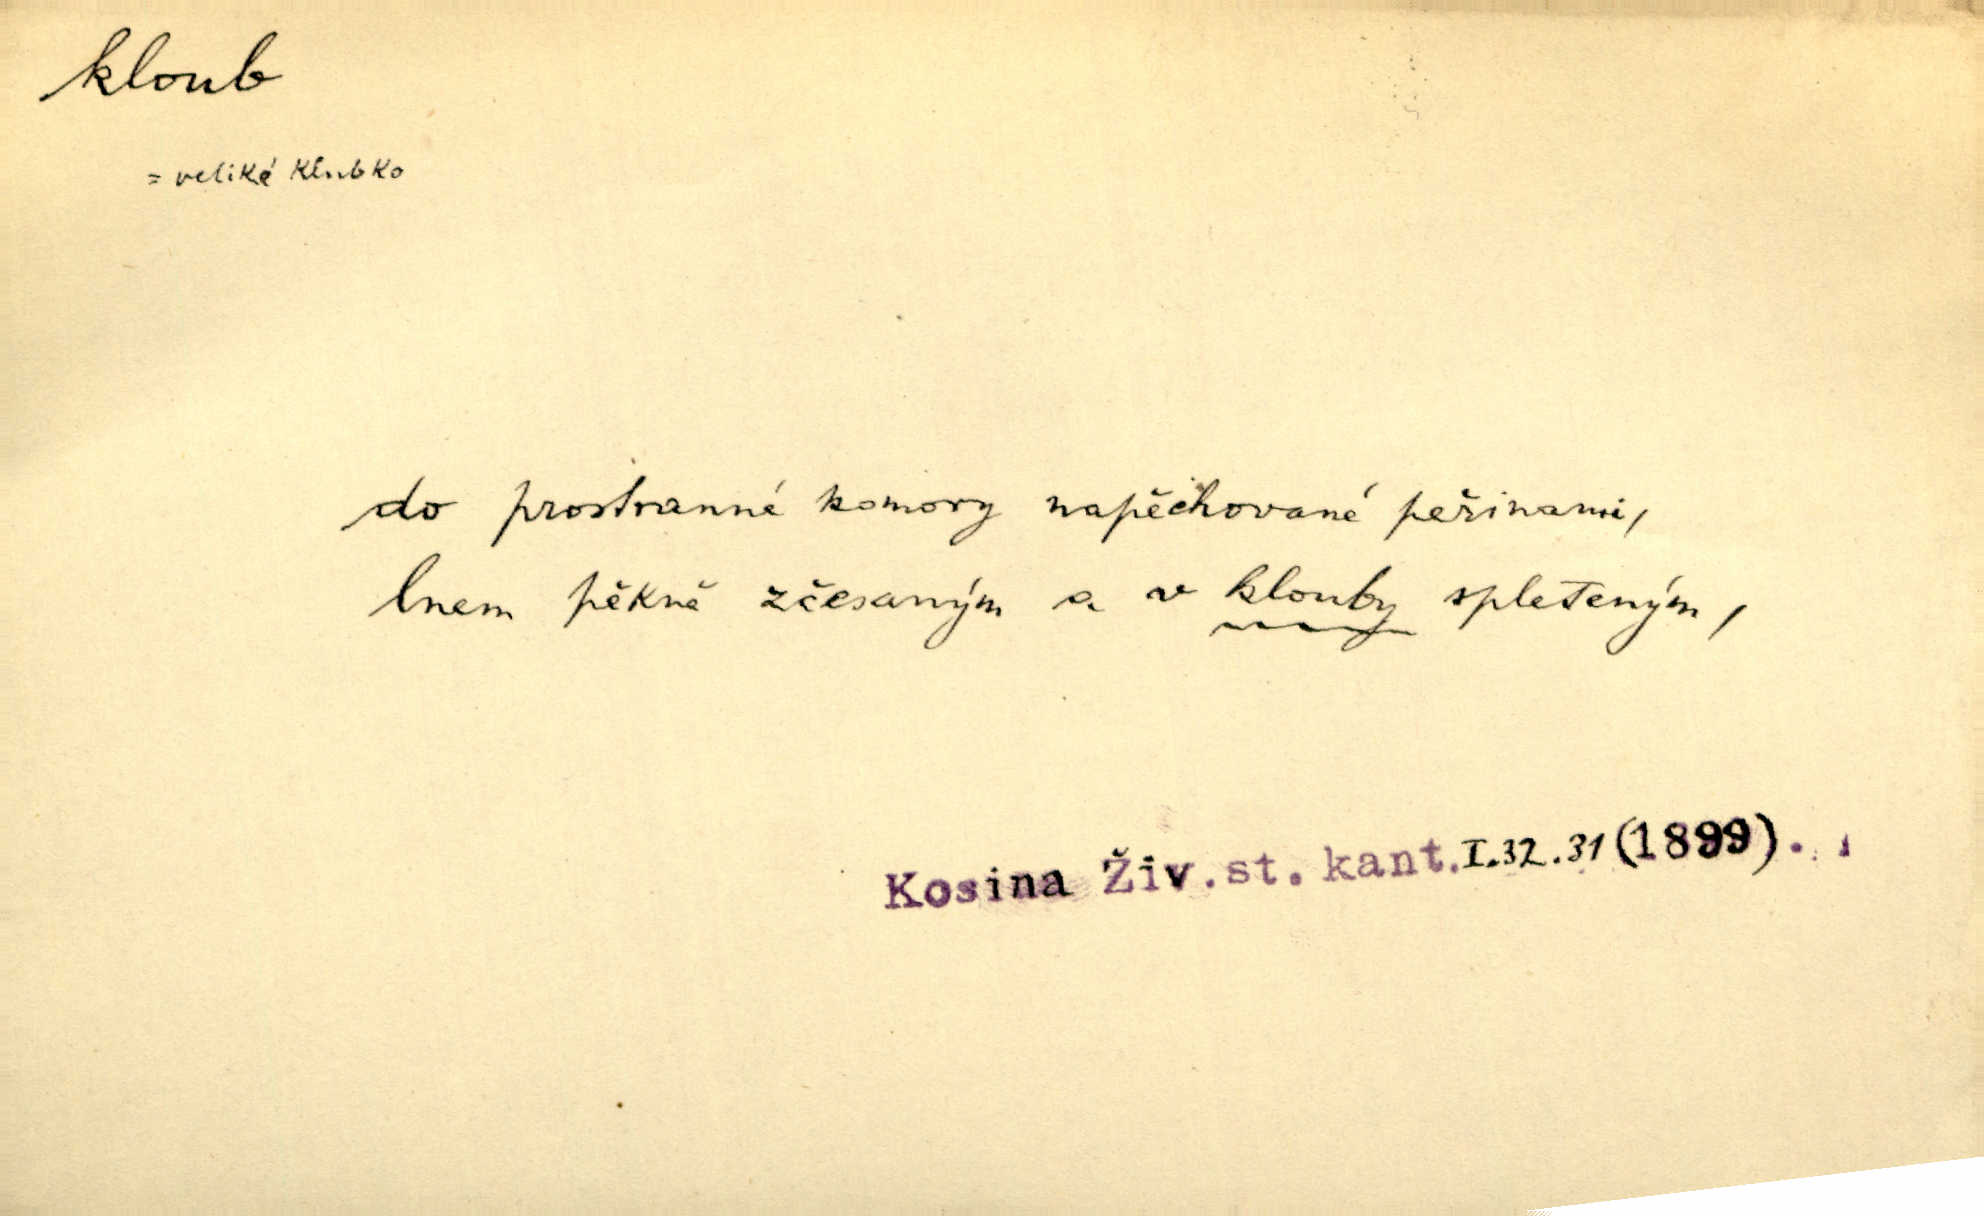 kloub
= veliké klubko
do prostranné komory napěchované peřinami,
lnem pěkně zčesaným a v klouby spleteným,
Kosina Živ.st.kant.I.32.31(1899).